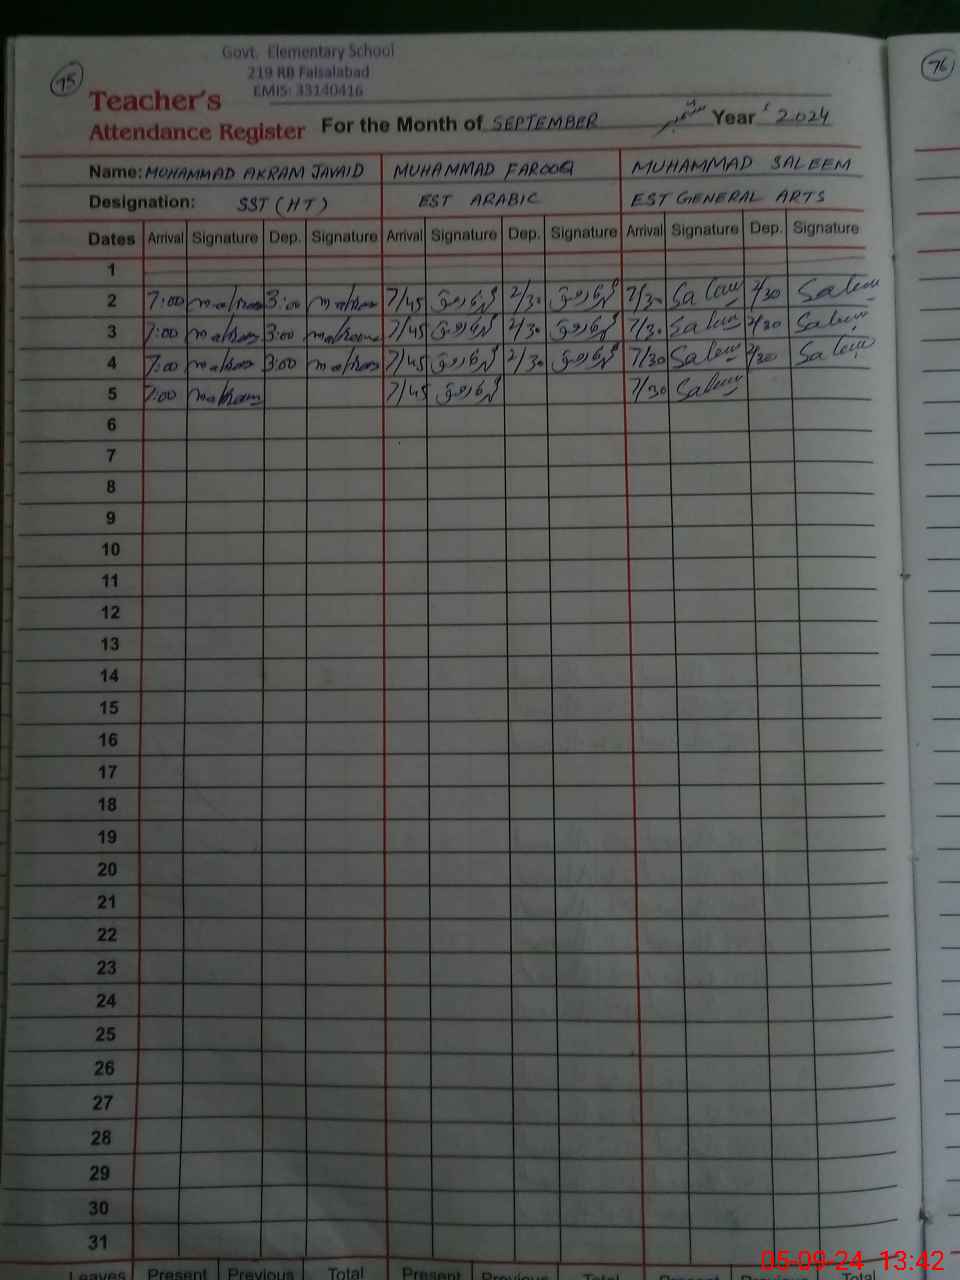 75
Govt. Elementary School
219 RB Faisalabad
EMIS: 33140416
76
Teacher's
Attendance Register For the Month of SEPTEMBER ستمبر Year 2024
Name: MUHAMMAD AKRAM JAVAID MUHAMMAD FAROOQ MUHAMMAD SALEEM
Designation: SST (HT) EST ARABIC EST GENERAL ARTS
Dates Arrival Signature Dep. Signature Arrival Signature Dep. Signature Arrival Signature Dep. Signature
1
2 7:00 3:00 7/45 2/30 7/30 Saleem 2/30 Saleem
3 7:00 3:00 7/45 2/30 7/30 Saleem 2/30 Saleem
4 7:00 3:00 7/45 2/30 7/30 Saleem 2/30 Saleem
5 7:00 7/45 7/30 Saleem
6
7
8
9
10
11
12
13
14
15
16
17
18
19
20
21
22
23
24
25
26
27
28
29
30
31
Leaves Present Previous Total Present Previous Total Present Previous Total
05-09-24 13:42